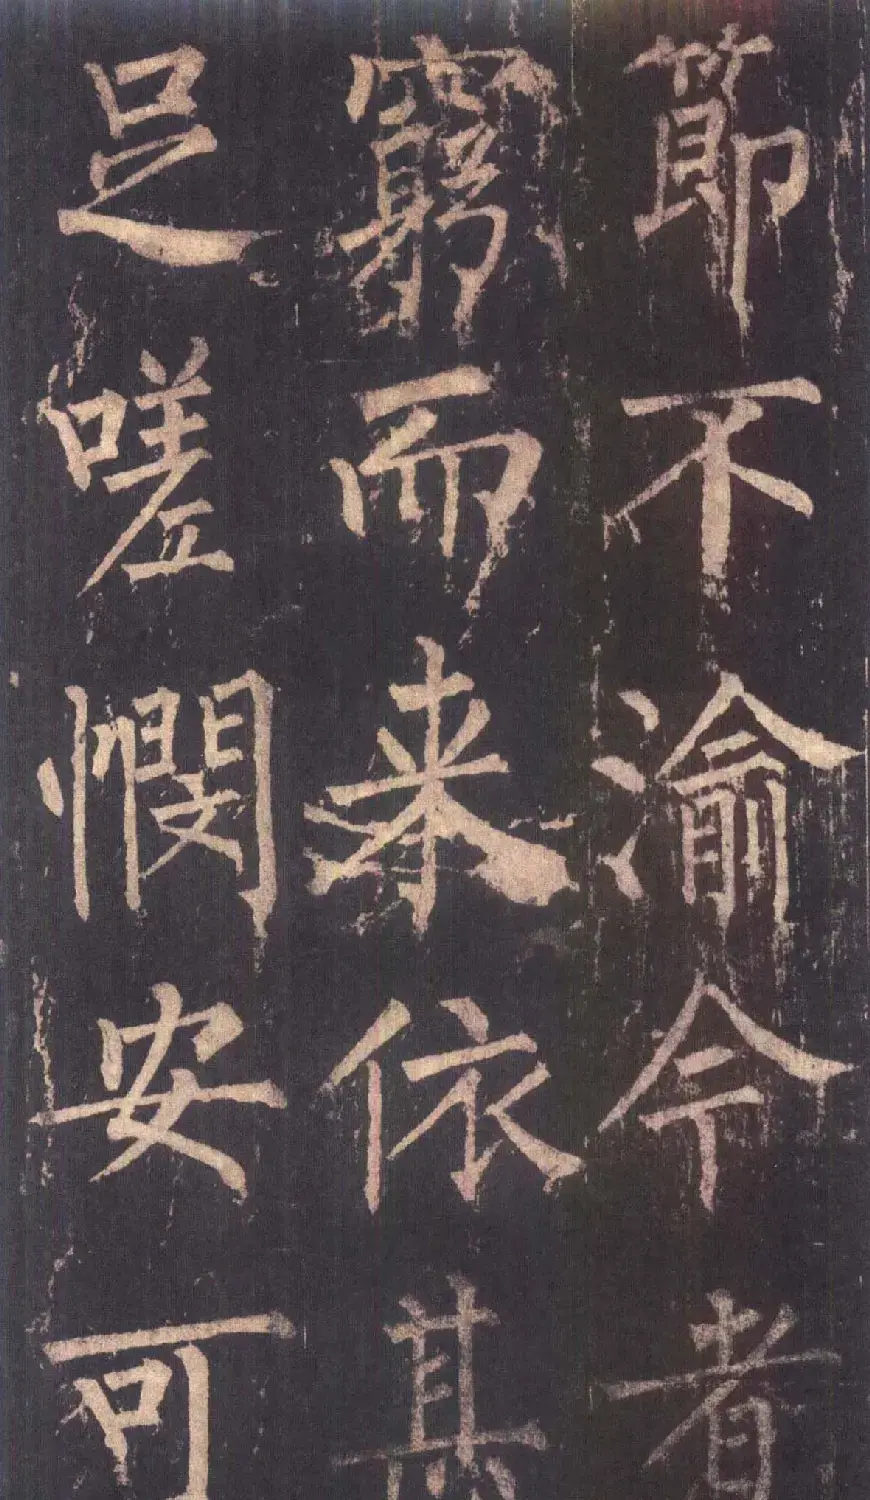 節不渝今者
窮而来依其
足嗟憫安可